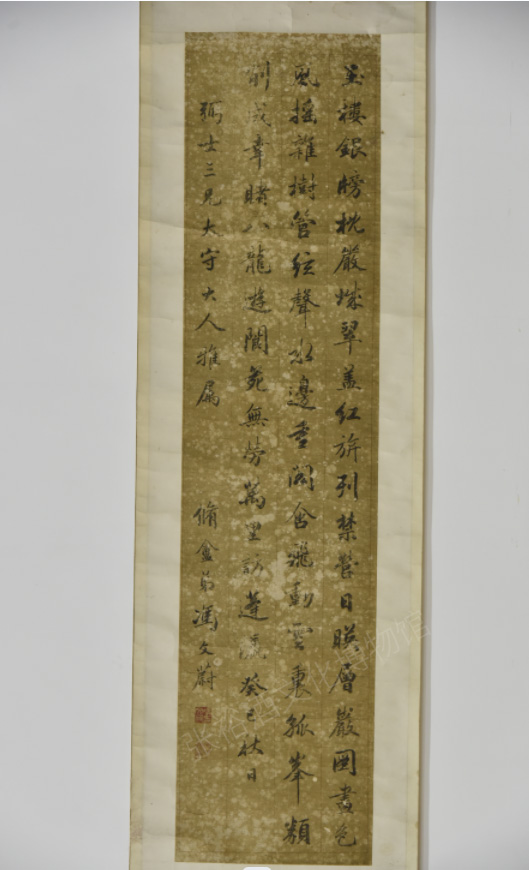 玉樓銀牓枕嚴城翠蓋紅旂列禁營日暎層巖圖畫色
風搖雜樹管絃聲水邊重閣含飛動雲裏孤峯類
削成幸睹八龍遊閬苑無勞萬里訪蓬瀛癸巳秋日
弼士三兄大守大人雅屬 脩盦弟馮文蔚
张裕酒文化博物馆